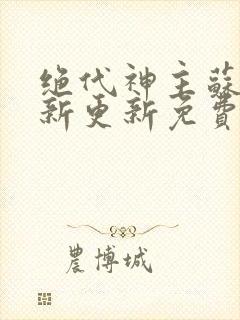 绝代神主蘇
新更新免費
農博城